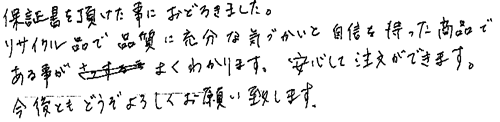 保証書を頂けた事におどろきました。
リサイクル品で品質に充分な気づかいと自信を持った商品で
ある事がよくわかります。安心して注文ができます。
今後ともどうぞよろしくお願い致します。